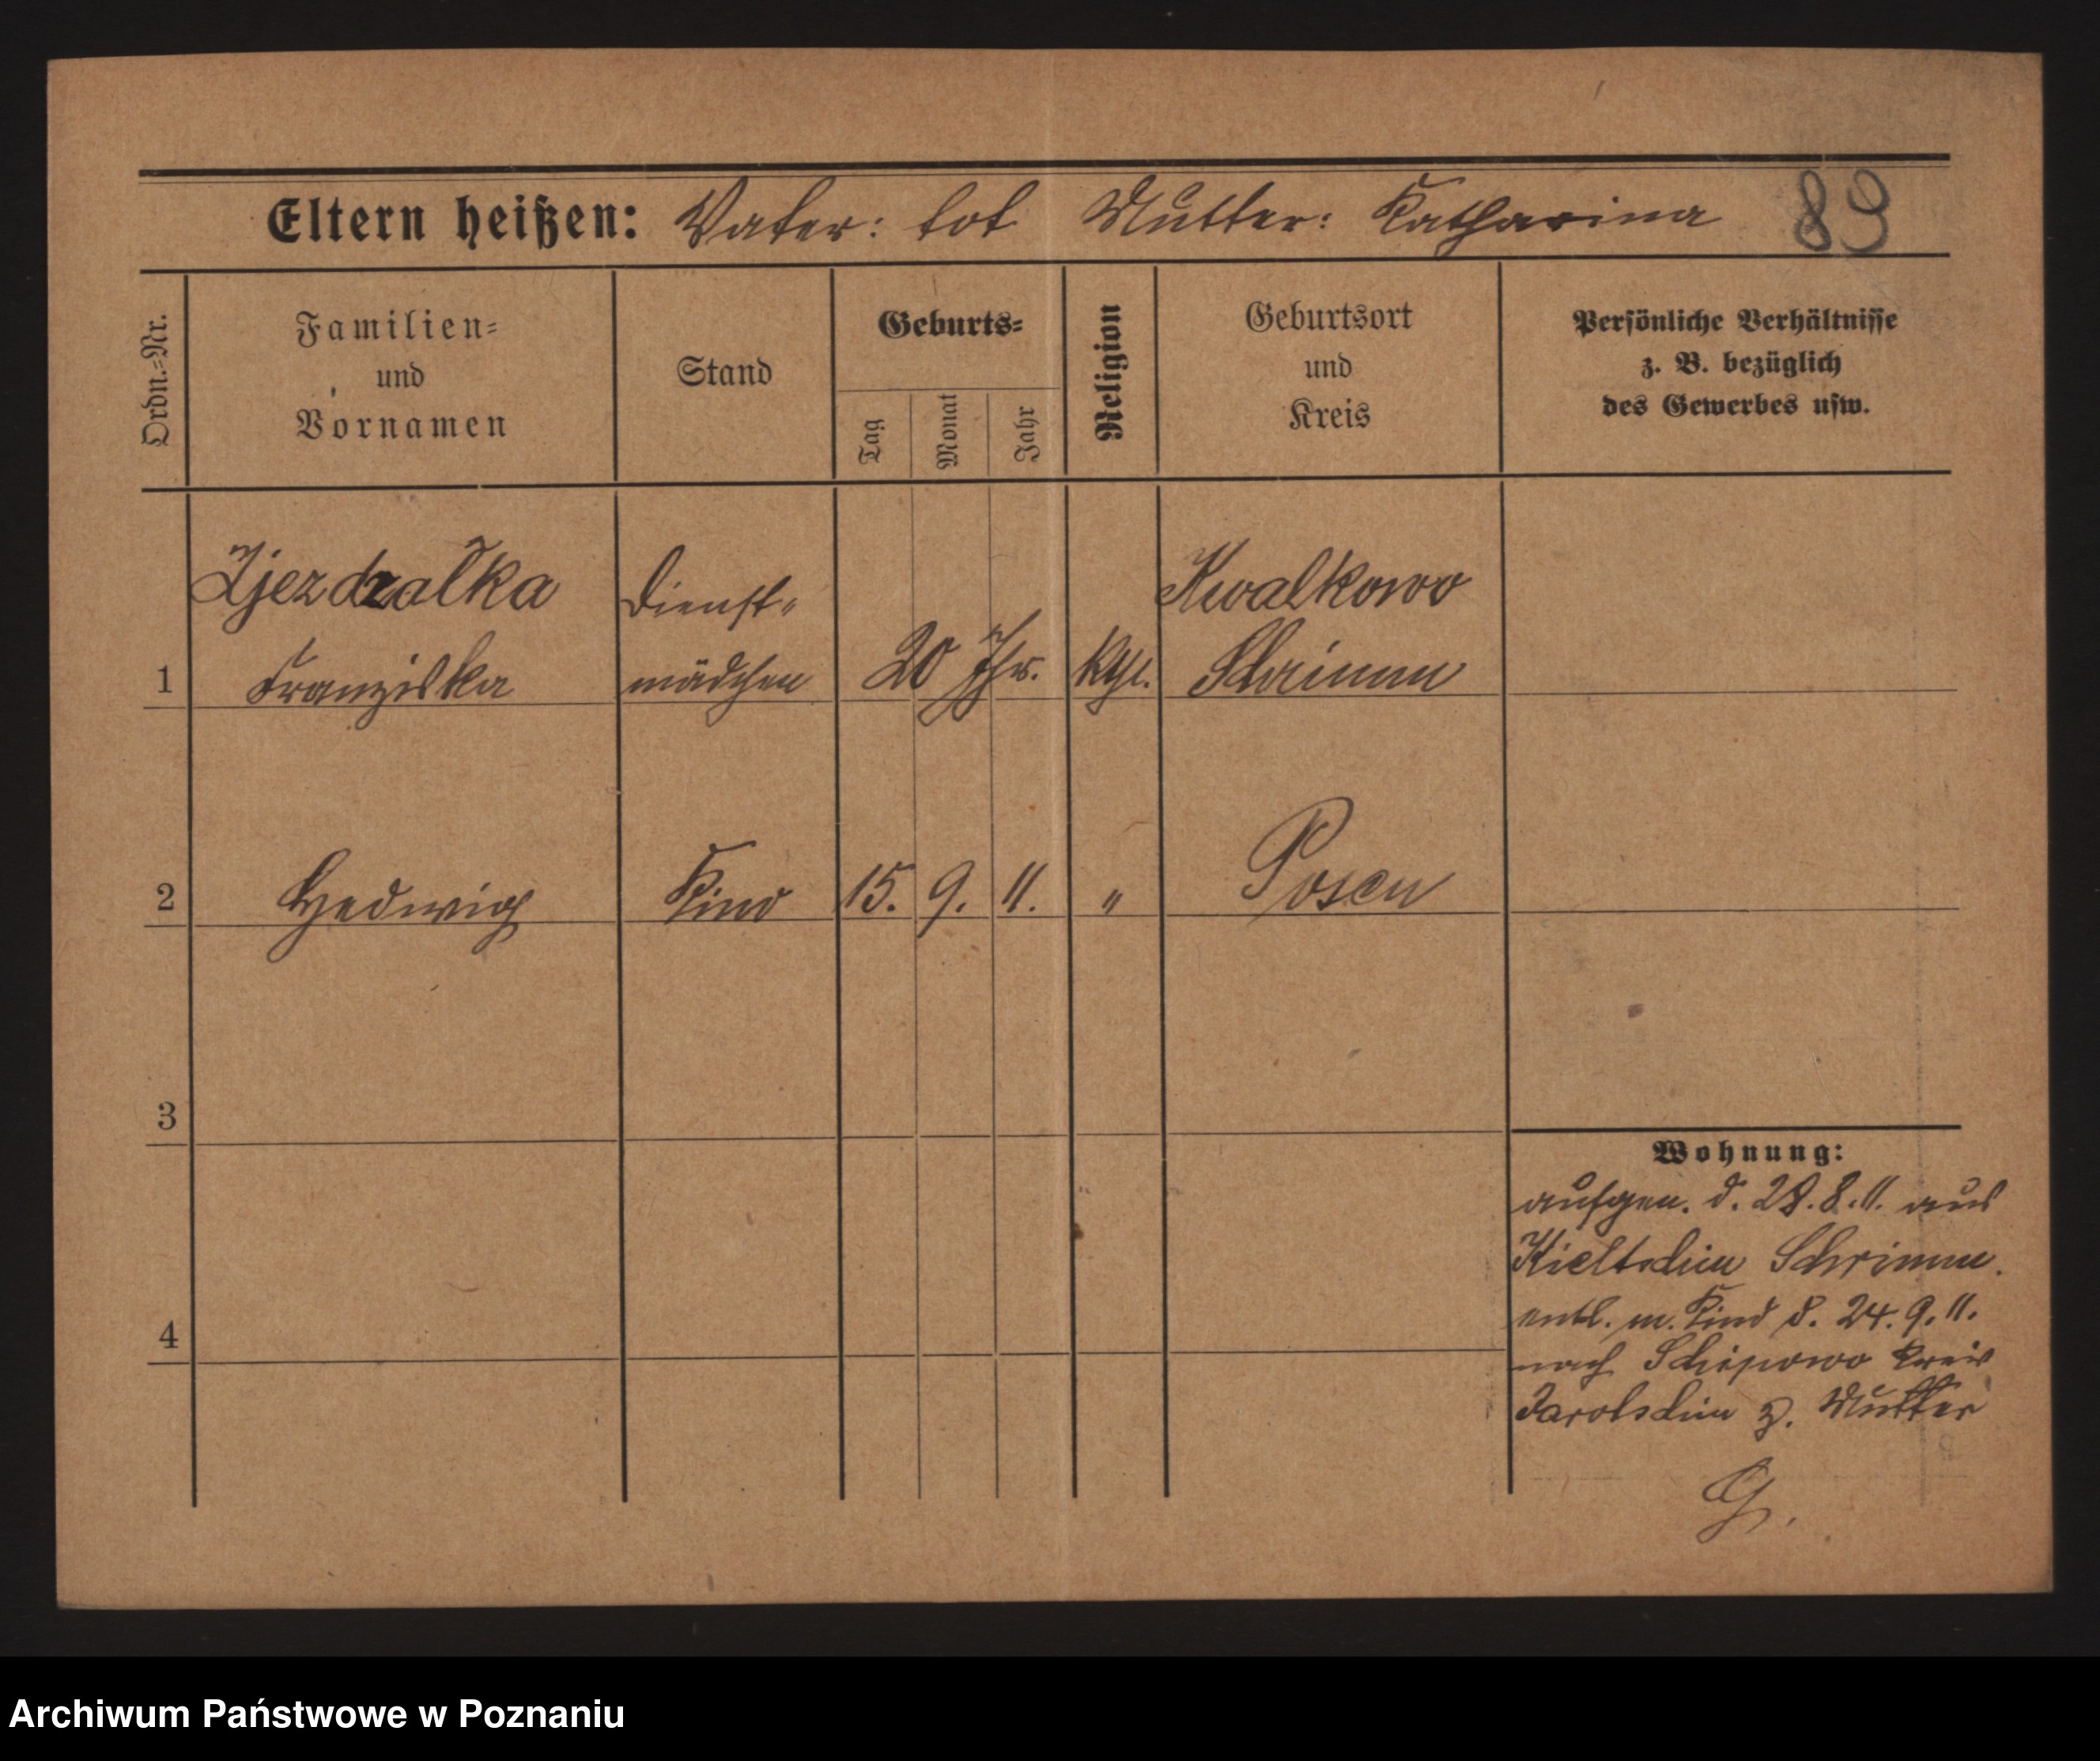 Eltern heißen: Vater: tot Mutter: Katharina 89
Ordn.-Nr.
Familien-
und
Vornamen
Stand
Geburts-
Tag
Monat
Jahr
Religion
Geburtsort
und
Kreis
Persönliche Verhältnisse
z. B. bezüglich
des Gewerbes usw.
Zjezdzalka Dienst- Kwalkowo
1 Franziska mädchen 20 Jhr. kth. Schrimm
2 Hedwig Kind 15. 9. 11. " Posen
3
Wohnung:
aufgen. d. 28.8.11. aus
Schrimm.
4
entl. m. Kind d. 24.9.11.
nach Kreis
z. Mutter
G.
Archiwum Państwowe w Poznaniu